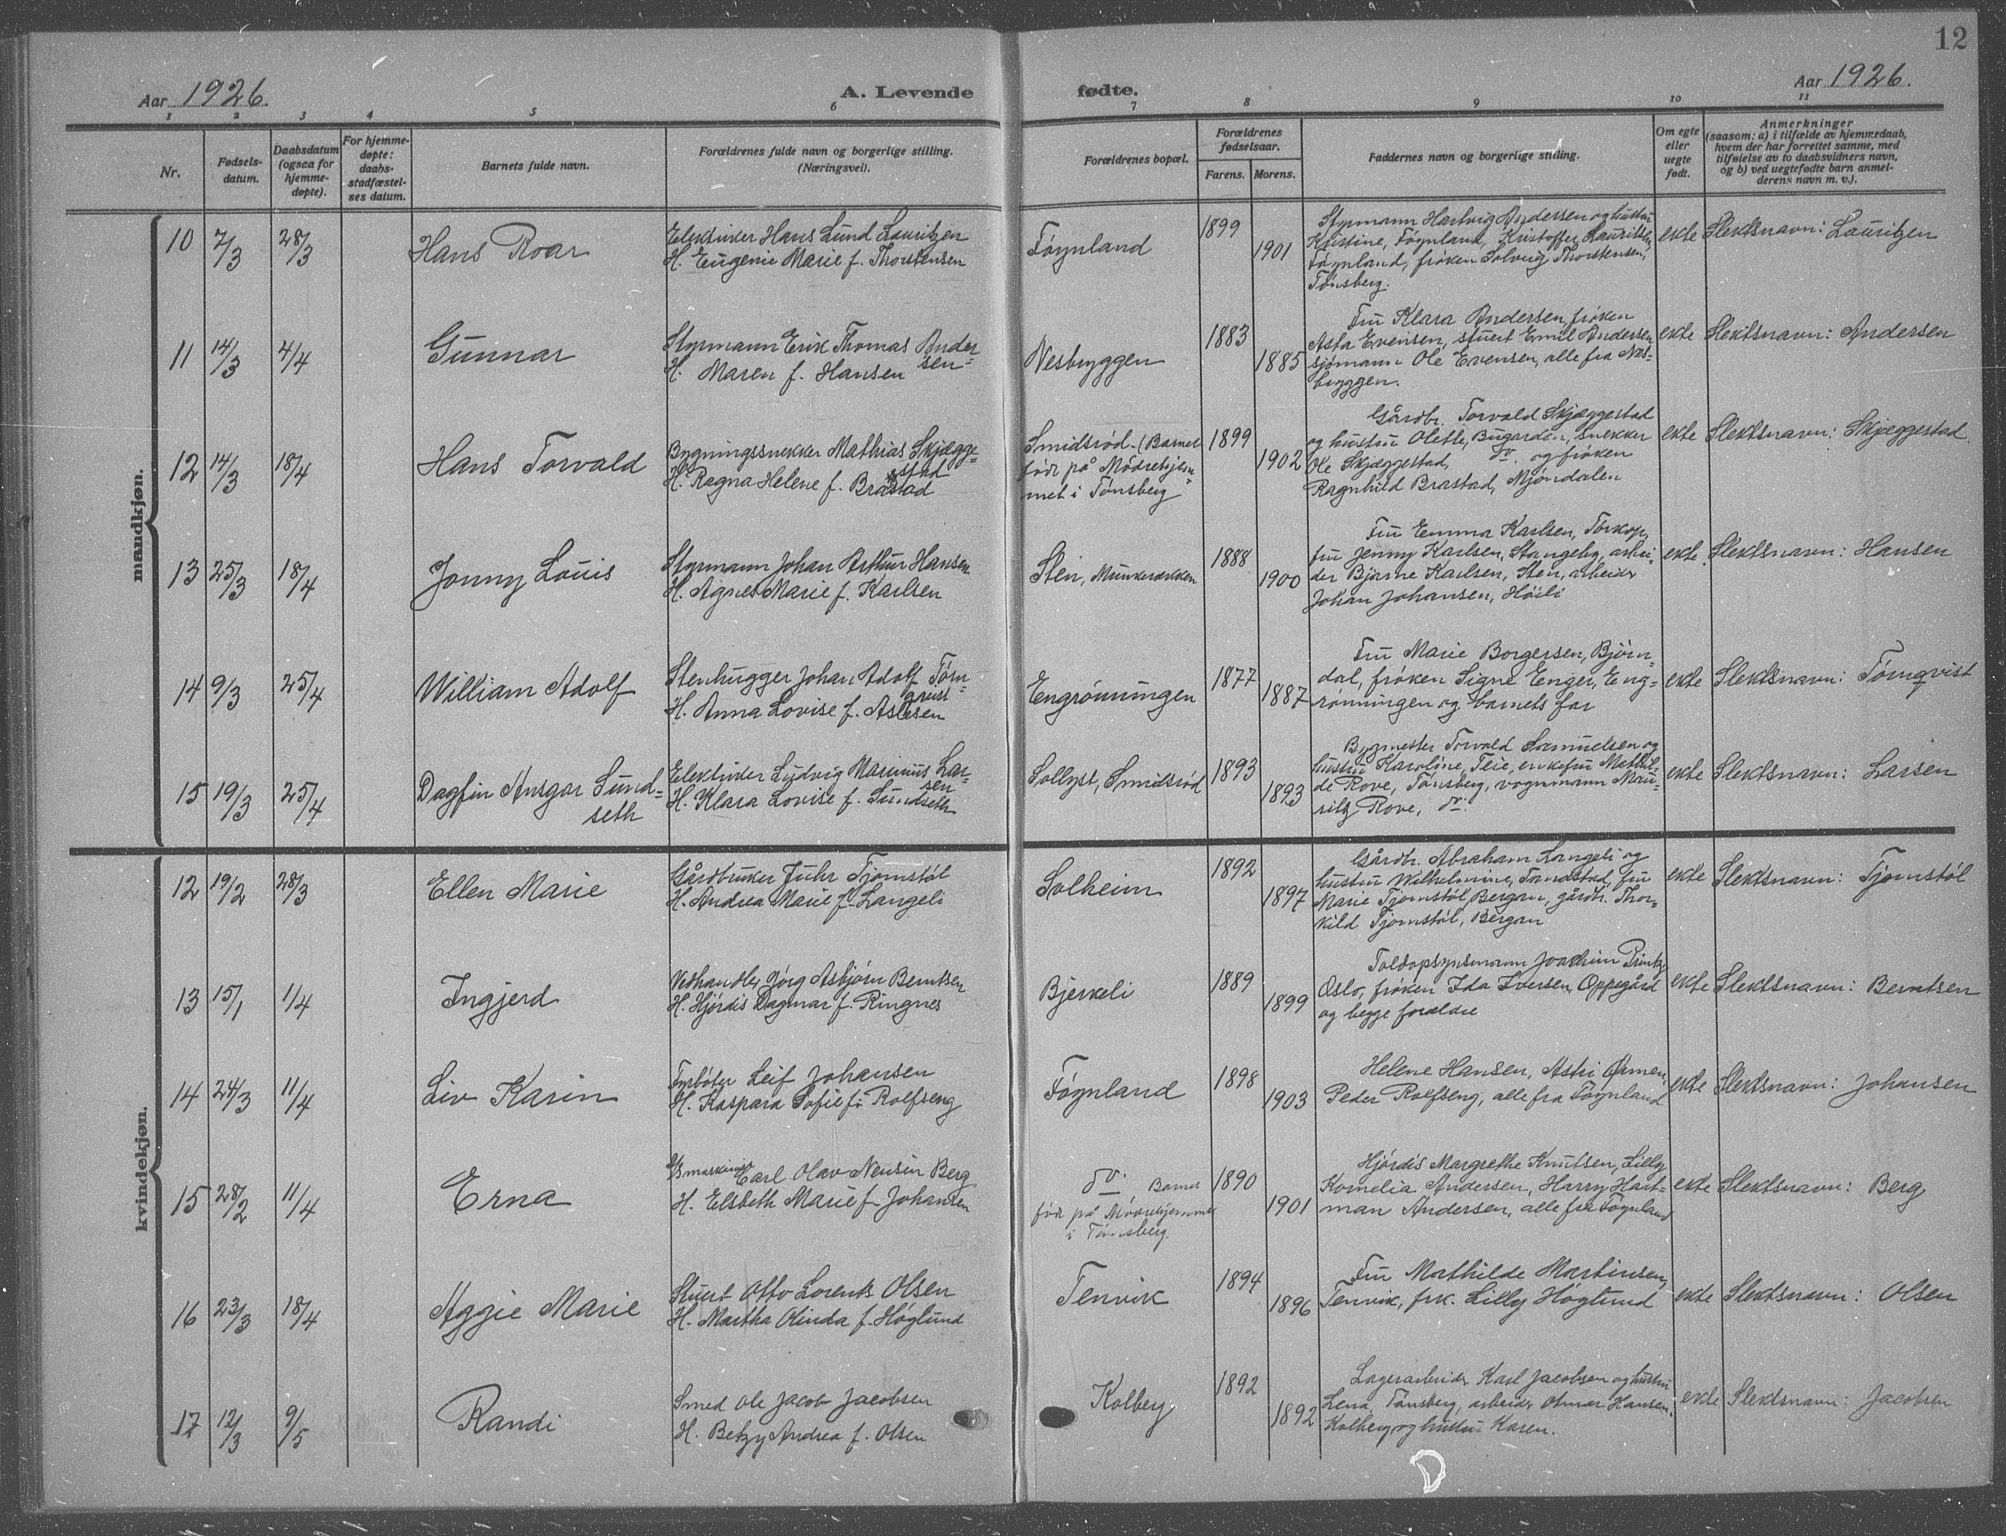 12
Aar 1926. A. Levende fødte. Aar 1926.
1 2 3 4 5 6 7 8 9 10 11
Nr.
Fødsels-
datum.
Daabsdatum
(ogsaa for
hjemme-
døpte).
For hjemme-
døpte:
daabs-
stadfæstel-
ses datum.
Barnets fulde navn.
Forældrenes fulde navn og borgerlige stilling.
(Næringsvei).
Forældrenes bopæl.
Forældrenes
fødselsaar.
Farens. Morens.
Faddernes navn og borgerlige stilling.
Om egte
eller
uegte
født.
Anmerkninger
(saasom: a) i tilfælde av hjemmedaab,
hvem der har forrettet samme, med
tilføielse av to daabsvidners navn,
og b) ved uegtefødte barn anmel-
derens navn m. v.).
mandkjøn.
10 7/3 28/3 Hans Roar
Elektriker Hans Lund Lauritzen
H. Eugenie Marie f. Thorstensen
Føynland 1899 1901
Styrmann Hartvig Andersen og hustru
Kristine, Føynland, Kristoffer Lauritsen,
Føynland, frøken Solveig Thorstensen,
Tønsberg.
ekte Slektsnavn: Lauritzen
11 14/3 4/4 Gunnar
Styrmann Erik Thomas Ander-
sen
H. Maren f. Hansen
Nesbryggen 1883 1885
Fru Klara Andersen, frøken
Asta Evensen, stuert Emil Andersen,
sjømann Ole Evensen, alle fra Nes-
bryggen.
ekte Slektsnavn: Andersen
12 14/3 18/4 Hans Torvald
Bygningssnekker Mathias Skjægge-
stad
H. Ragna Helene f. Brastad
Smidsrød. (Barnet
født på Mødrehjem-
met i Tønsberg
1899 1902
Gårdbr. Torvald Skjæggestad
og hustru Olette, Bugarden, snekker
Ole Skjæggestad, do. og frøken
Ragnhild Brastad, Mjøndalen
ekte Slektsnavn: Skjeggestad.
13 25/3 18/4 Jonny Louis
Styrmann Johan Arthur Hansen
H. Agnes Marie f. Karlsen
Sten, 1888 1900
Fru Emma Karlsen, Torkop,
fru Jenny Karlsen, Stangeby, arbei-
der Bjarne Karlsen, Sten, arbeider
Johan Johansen, Høili
ekte Slektsnavn: Hansen
14 9/3 25/4 William Adolf
Stenhugger Johan Adolf Törn-
qvist
H. Anna Lovise f. Aslesen
Engrønningen 1877 1887
Fru Marie Borgersen, Bjørn-
dal, frøken Signe Enger, Eng-
rønningen og barnets far
ekte Slektsnavn: Törnqvist
15 19/3 25/4 Dagfin Ansgar Sund-
seth
Elektriker Ludvig Marinius Lar-
sen
H. Klara Lovise f. Sundseth
Sollyst, Smidsrød 1893 1893
Bygmester Torvald Samuelsen og
hustru Karoline, Teie, enkefru Mathil-
de Rove, Tønsberg, vognmann Mau-
ritz Rove, do.
ekte Slektsnavn: Larsen
kvindekjøn.
12 19/2 28/3 Ellen Marie
Gårdbruker Juhr Tjomstøl
H. Andrea Marie f. Langeli
Solheim 1892 1897
Gårdbr. Abraham Langeli og
hustru Wilhelmine, fru
Marie Tjomstøl, Bergan, gårdbr. Thor-
kild Tjomstøl, Bergan
ekte Slektsnavn: Tjomstøl
13 15/1 1/4 Ingjerd
Vedhandler Jörg Asbjørn Berntsen
H. Hjørdis Dagmar f. Ringnes
Bjerkeli 1889 1899
Toldopsynsmann Joachim
Oslo, frøken Ida Iversen, Oppegård
og begge forældre
ekte Slektsnavn: Berntsen
14 24/3 11/4 Liv Karin
Fyrbøter Leif Johansen
H. Kaspara Sofie f. Rolfseng
Føynland 1898 1903
Helene Hansen, Astri Ormen,
Peder Rolfseng, alle fra Føynland
ekte Slektsnavn: Johansen
15 28/2 11/4 Erna
Carl Olav Nensin Berg
H. Elsbeth Marie f. Johansen
do. Barnet
født på Mødrehjemmet
i Tønsberg
1890 1901
Hjørdis Margrethe Knutsen, Lilly
Kornelia Andersen, Harry Hart-
man Andersen, alle fra Føynland
ekte Slektsnavn: Berg
16 23/3 18/4 Aggie Marie
Stuert Otto Lorents Olsen
H. Martha Olinda f. Høglund
Tenvik 1894 1896
Fru Mathilde Martinsen,
Tenvik, frk. Lilly Høglund
ekte Slektsnavn: Olsen
17 12/3 9/5 Randi
Smed Ole Jacob Jacobsen
H. Betzy Andrea f. Olsen
Kolberg 1892 1892
Lagerarbeider Karl Jacobsen og hustru
Lena, Tønsberg, arbeider Otmar Hansen,
Kolberg og hustru Karen.
ekte Slektsnavn: Jacobsen